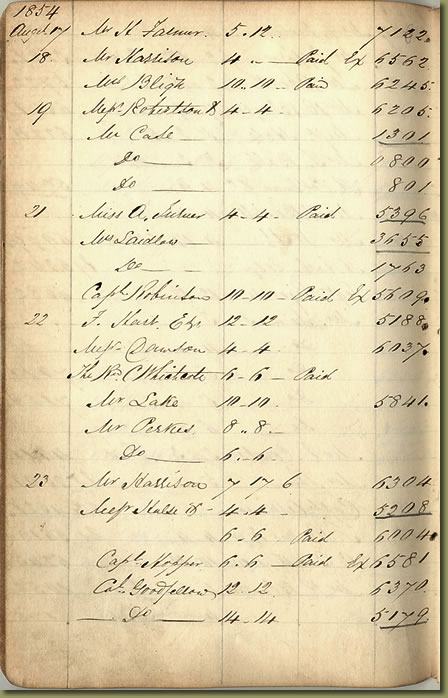 1854
August 17 Mr H Farmer. 5.12. 7122.
18 Mr Harrison 4 „ — Paid Ex 6562
Mrs Bligh 10..10 - Paid 6245.
19 Messrs Robertson & 4-4 6205.
Mr Case 1301
Do 0800
Do 801
21 Miss A, 4-4. Paid 5396
Mrs Laidlaw 3655
Do 1763
Capt Robinson 10-10- Paid Ex 5609.
22 F. Hart. Esq 12-12 5188.
Dawson 4-4. 6037.
The Rev. C Whichcote 6-6 - Paid
Mr Lake 10.10. 5841.
Mr Perkes 8..8.-
Do 6..6.
23 Mr Harrison 7 17 6 6304
Messrs Hulse & - 4-4. 5208
6..6 Paid 6004
Capt. Hopper 6.6 — Paid Ex 6581
Col. Goodfellow 12.12. 6370.
Do 14.14 5179.